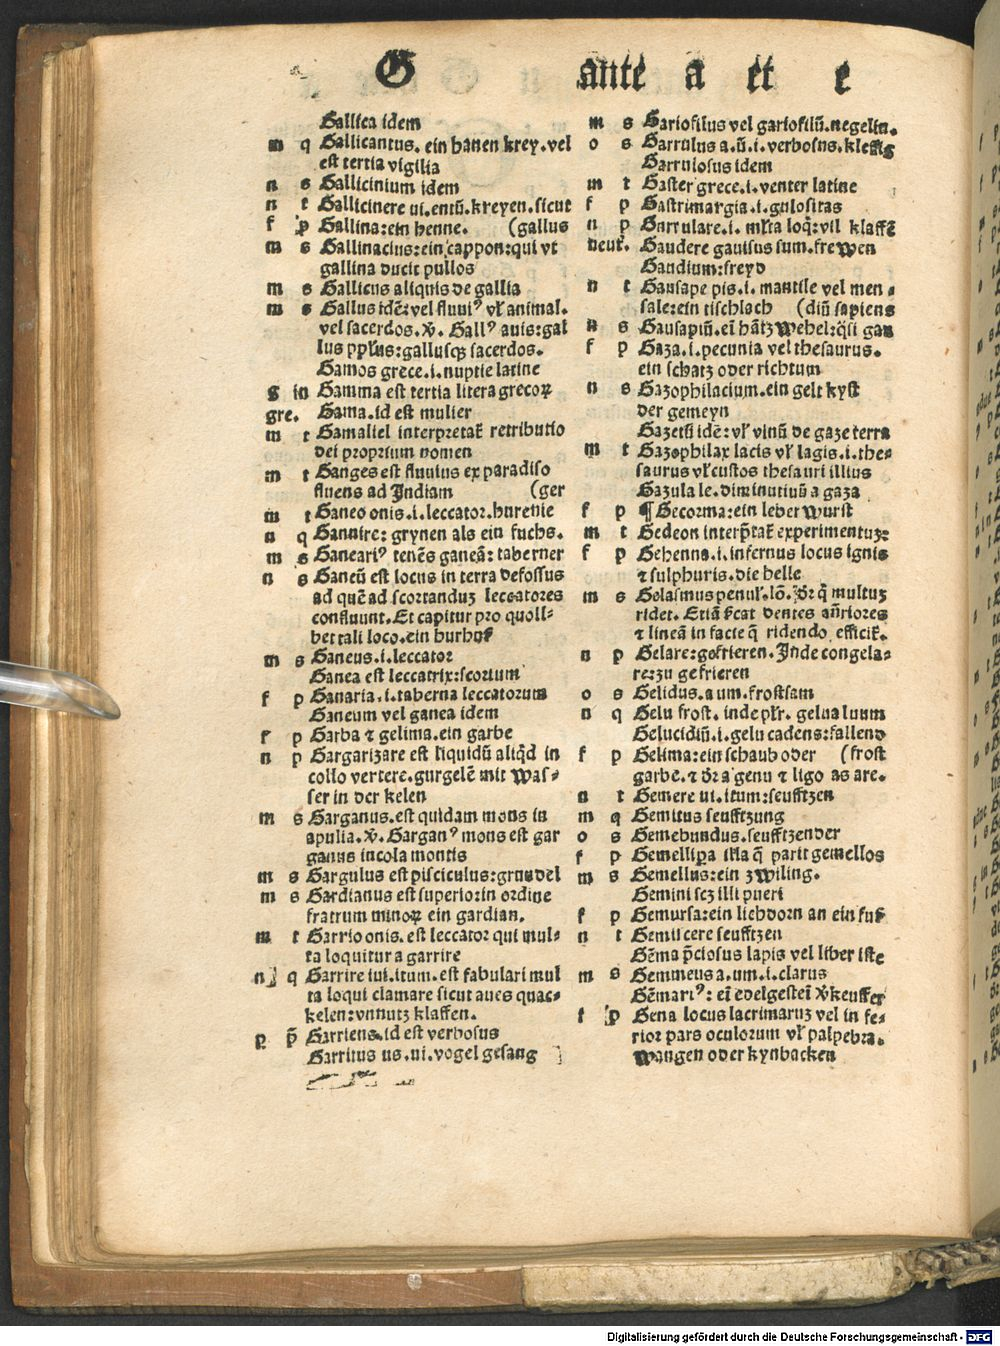 G ante a et e
Gallica idem
m q Gallicantus. ein hanen krey. vel
est tertia vigilia
n s Gallicinium idem
n t Gallicinere ui. entū. kreyen. sicut
f p Gallina: ein henne. (gallus
m s Gallinacius: ein cappon: qui vt
gallina ducit pullos
m s Gallicus aliquis de gallia
m s Gallus idē: vel fluuiꝰ vł animal.
vel sacerdos. V̄. Gallꝰ auis: gal
lus ppłus: gallusqꝫ sacerdos.
Gamos grece. i. nuptie latine
g in Gamma est tertia litera grecoꝝ
gre. Gama. id est mulier
m t Gamaliel interpretat̄ retributio
dei proprium nomen
m t Ganges est fluuius ex paradiso
fluens ad Indiam (ger
m t Ganeo onis. i. leccator. hurenie
n q Gannire: grynen als ein fuchs.
m s Ganeariꝰ tenēs ganeā: taberner
n s Ganeū est locus in terra defossus
ad quē ad scortanduꝫ leccatores
confluunt. Et capitur pro quoli-
bet tali loco. ein hurhuß
m s Ganeus. i. leccator
Ganea est leccatrix: scortum
f p Ganaria. i. taberna leccatorum
Ganeum vel ganea idem
f p Garba ⁊ gelima. ein garbe
n p Gargarizare est liquidū aliqd in
collo vertere. gurgelē mit Was-
ser in der kelen
m s Garganus. est quidam mons in
apulia. V̄. Garganꝰ mons est gar
ganus incola montis
m s Gargulus est pisciculus: grundel
m s Gardianus est superior in ordine
fratrum minoꝝ ein gardian.
m t Garrio onis. est leccator qui mul-
ta loquitur a garrire
n q Garrire iui. itum. est fabulari mul
ta loqui clamare sicut aues quac-
kelen: vnnutz klaffen.
p p̄ Garriens. id est verbosus
Garritus us. ui. vogel gesang
m s Gariofilus vel gariofilū. negelin.
o s Garrulus a. ū. i. verbosus. kleffig
Garrulosus idem
m t Gaster grece. i. venter latine
f p Gastrimargia. i. gulositas
n p Garrulare. i. młta loq̄: vil klaffē
neut̄. Gaudere gauisus sum. freWen
Gaudium: freyd
n t Gausape pis. i. mantile vel men-
sale: ein tischlach (diū sapiens
n s Gausapiū. eī hātzWehel: q̄si gau
f p Gaza. i. pecunia vel thesaurus.
ein schatz oder richtum
n s Gazophilacium. ein gelt kyst
der gemeyn
Gazetū idē: vł vinū de gaze terra
m t Gazophilax lacis vł lagis. i. the-
saurus vł custos thesauri illius
Gazula le. diminutiuū a gaza
f p ¶ Gecorma: ein leber Wurst
m t Gedeon interp̄tat̄ experimentuꝫ:
f p Gehenna. i. infernus locus ignis
⁊ sulphuris. die helle
m s Gelasmus penuł. lō. dr̄ q̄ multuꝫ
ridet. Etiā s̄cat dentes añriores
⁊ lineā in facie q̄ ridendo efficit̄.
n p Gelare: gefrieren. Inde congela-
re: zu gefrieren
o s Gelidus. a um. frostsam
n q Gelu frost. inde płr. gelua luum
Gelucidiū. i. gelu cadens: fallend
f p Gelima: ein schaub oder (frost
garbe. ⁊ dr̄ a genu ⁊ ligo as are.
n t Gemere ui. itum: seufftzen
m q Gemitus seufftzung
o s Gemebundus. seufftzender
f p Gemellipa illa q̄ parit gemellos
m s Gemellus: ein zWiling.
Gemini scꝫ illi pueri
f p Gemursa: ein lichdorn an ein fuß
n t Gemiscere seufftzen
Gēma p̄ciosus lapis vel liber iste
m s Gemmeus a. um. i. clarus
Gēmariꝰ: eī edelgesteī v̄keuffer
f p Gena locus lacrimaruꝫ vel in fe-
rior pars oculorum vł palpebra.
Wangen oder kynbacken
Digitalisierung gefördert durch die Deutsche Forschungsgemeinschaft - DFG